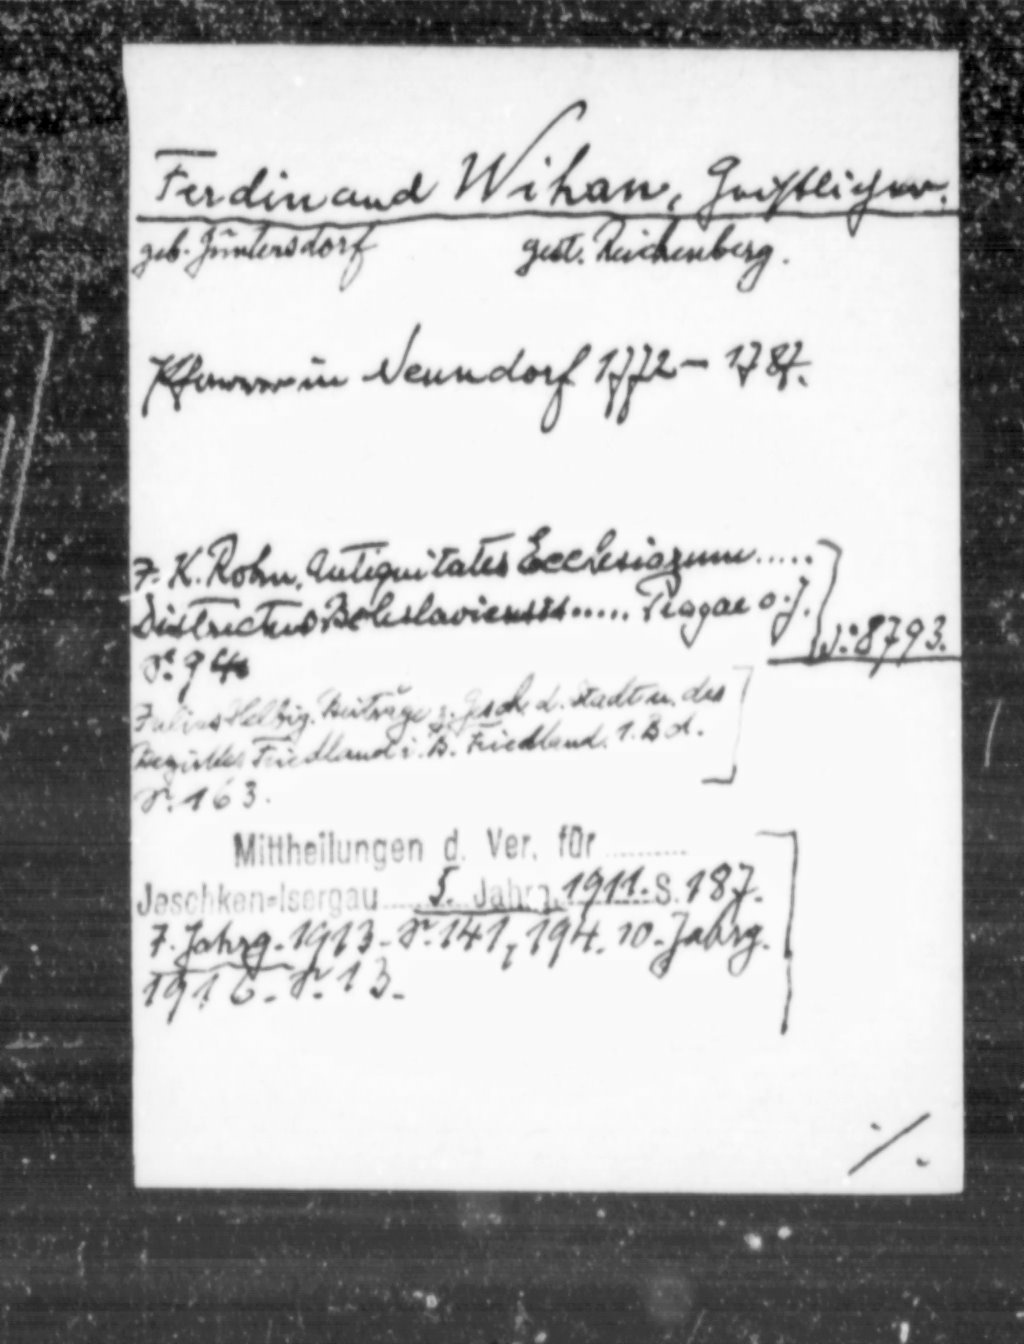 Ferdinand Wihan, Geistlicher.
geb. Güntersdorf gest. Reichenberg.
Pfarrer in Neundorf 1772 – 1787.
J. K. Rohn, Antiquitates Ecclesiarum.....
Districtus Boleslaviensis..... Pragae o. J.
S. 94
S. 8793.
Julius Helbig. Beiträge z. Gesch. d. Stadt u. des
Bezirkes Friedland i. B. Friedland. 1. Bd.
S. 163.
Mittheilungen d. Ver. für ..........
Jeschken=Isergau..... 5. Jahrg. 1911. S. 187.
7. Jahrg. 1913. S. 141, 194. 10. Jahrg.
1916. S. 13.
./.